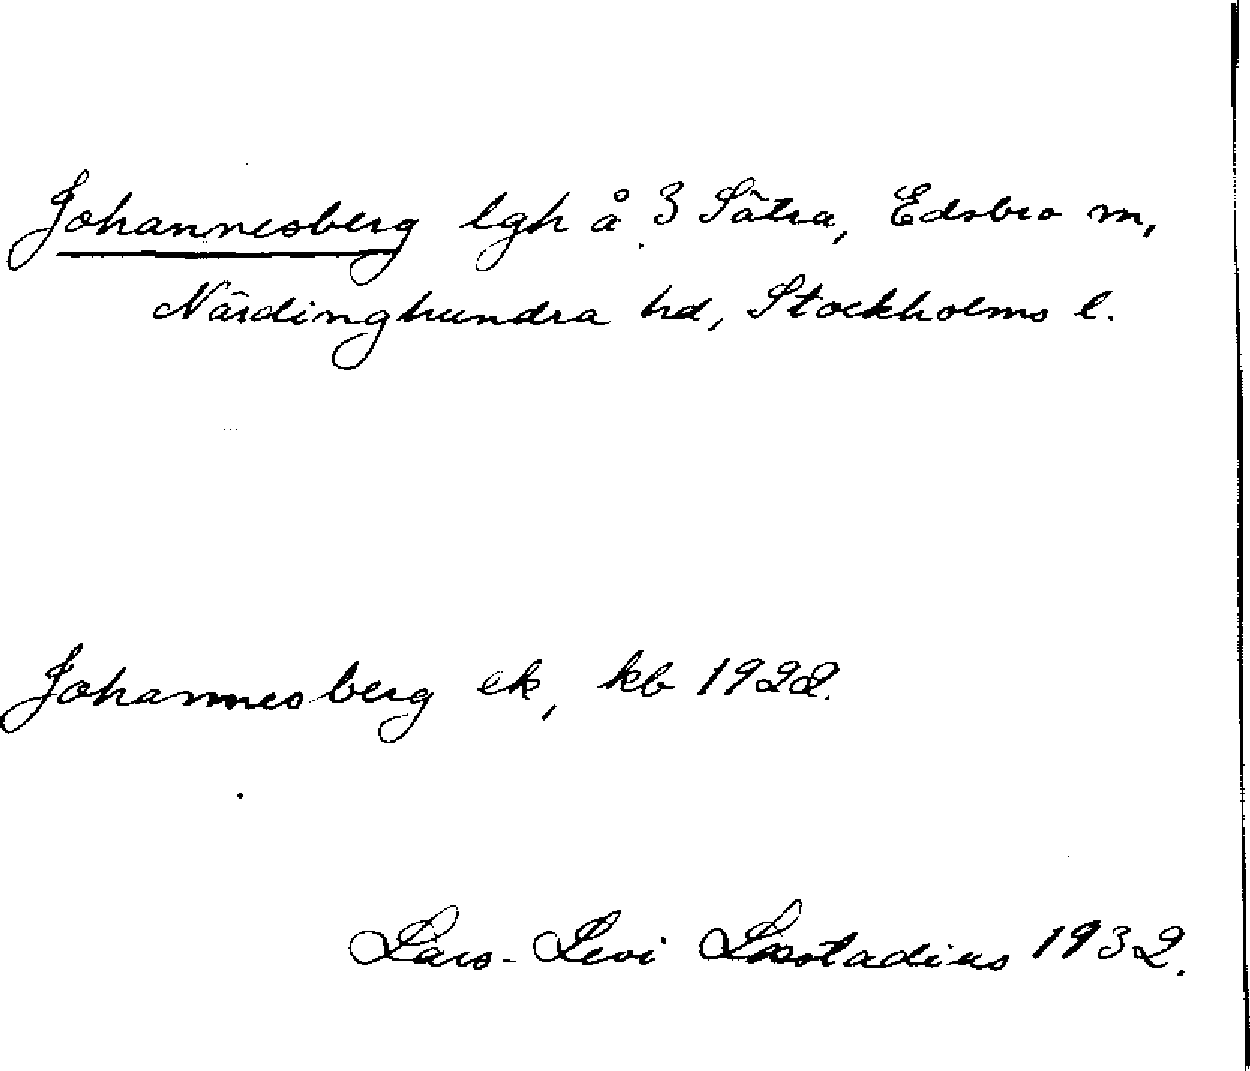 Johannesberg lgh å 3 Sätra, Edsbro sn,
Närdinghundra hd, Stockholms l.
Johannesberg ek, kb 1928.
Lars-Levi Læstadius 1932.